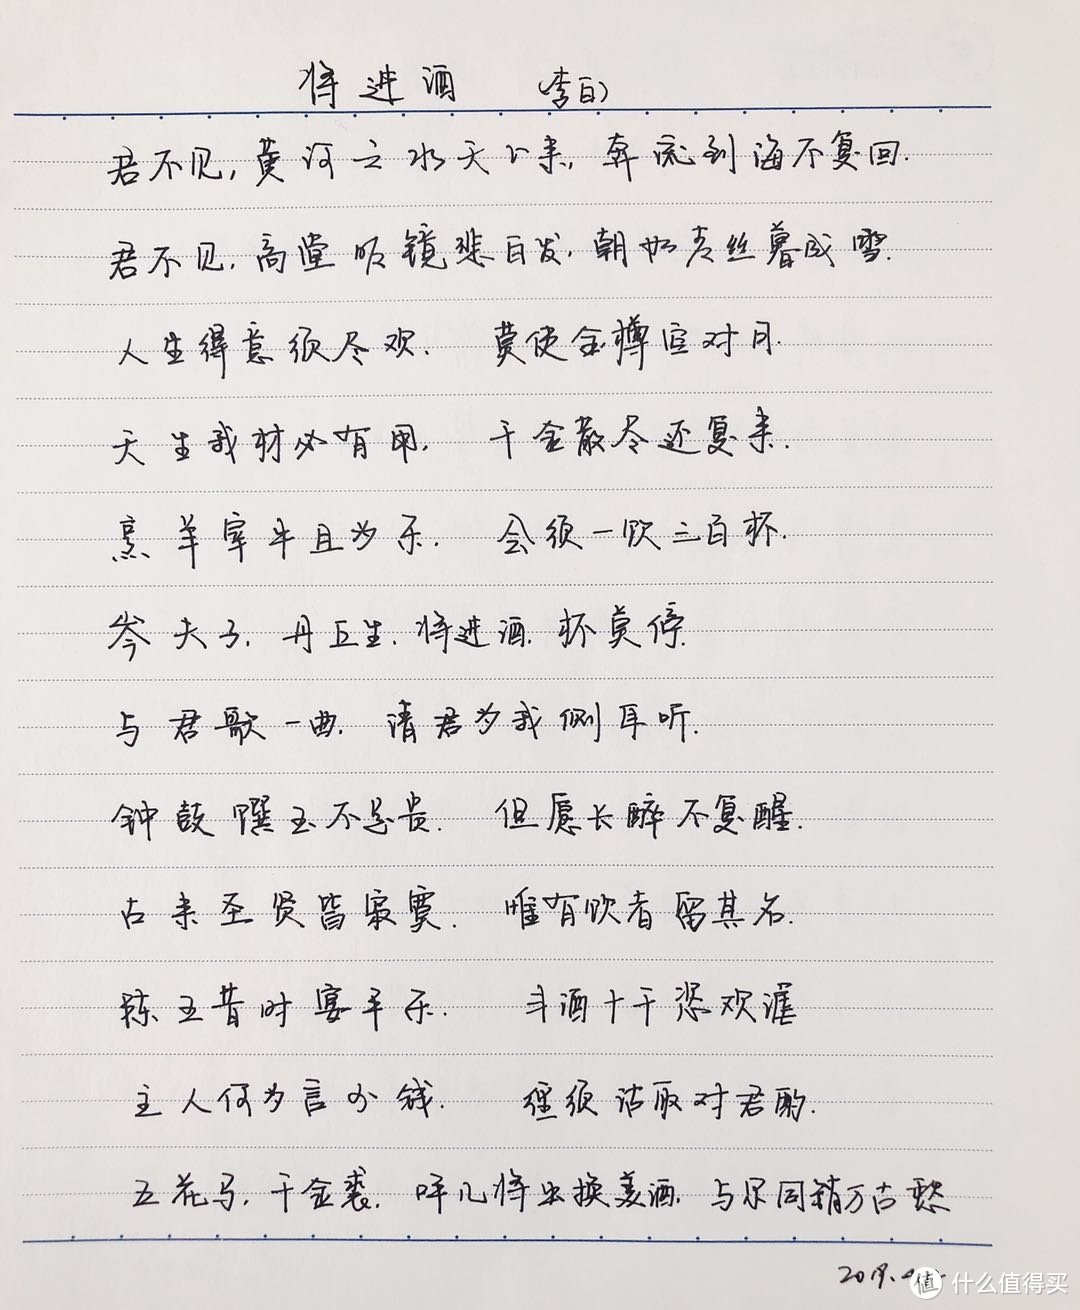 将进酒 (李白)
君不见,黄河之水天上来,奔流到海不复回.
君不见,高堂明镜悲白发,朝如青丝暮成雪.
人生得意须尽欢. 莫使金樽空对月.
天生我材必有用, 千金散尽还复来.
烹羊宰牛且为乐. 会须一饮三百杯.
岑夫子,丹丘生,将进酒,杯莫停.
与君歌一曲,请君为我侧耳听.
钟鼓馔玉不足贵. 但愿长醉不复醒.
古来圣贤皆寂寞. 惟有饮者留其名.
陈王昔时宴平乐. 斗酒十千恣欢谑
主人何为言少钱. 径须沽取对君酌.
五花马,千金裘,呼儿将出换美酒,与尔同销万古愁
值 什么值得买